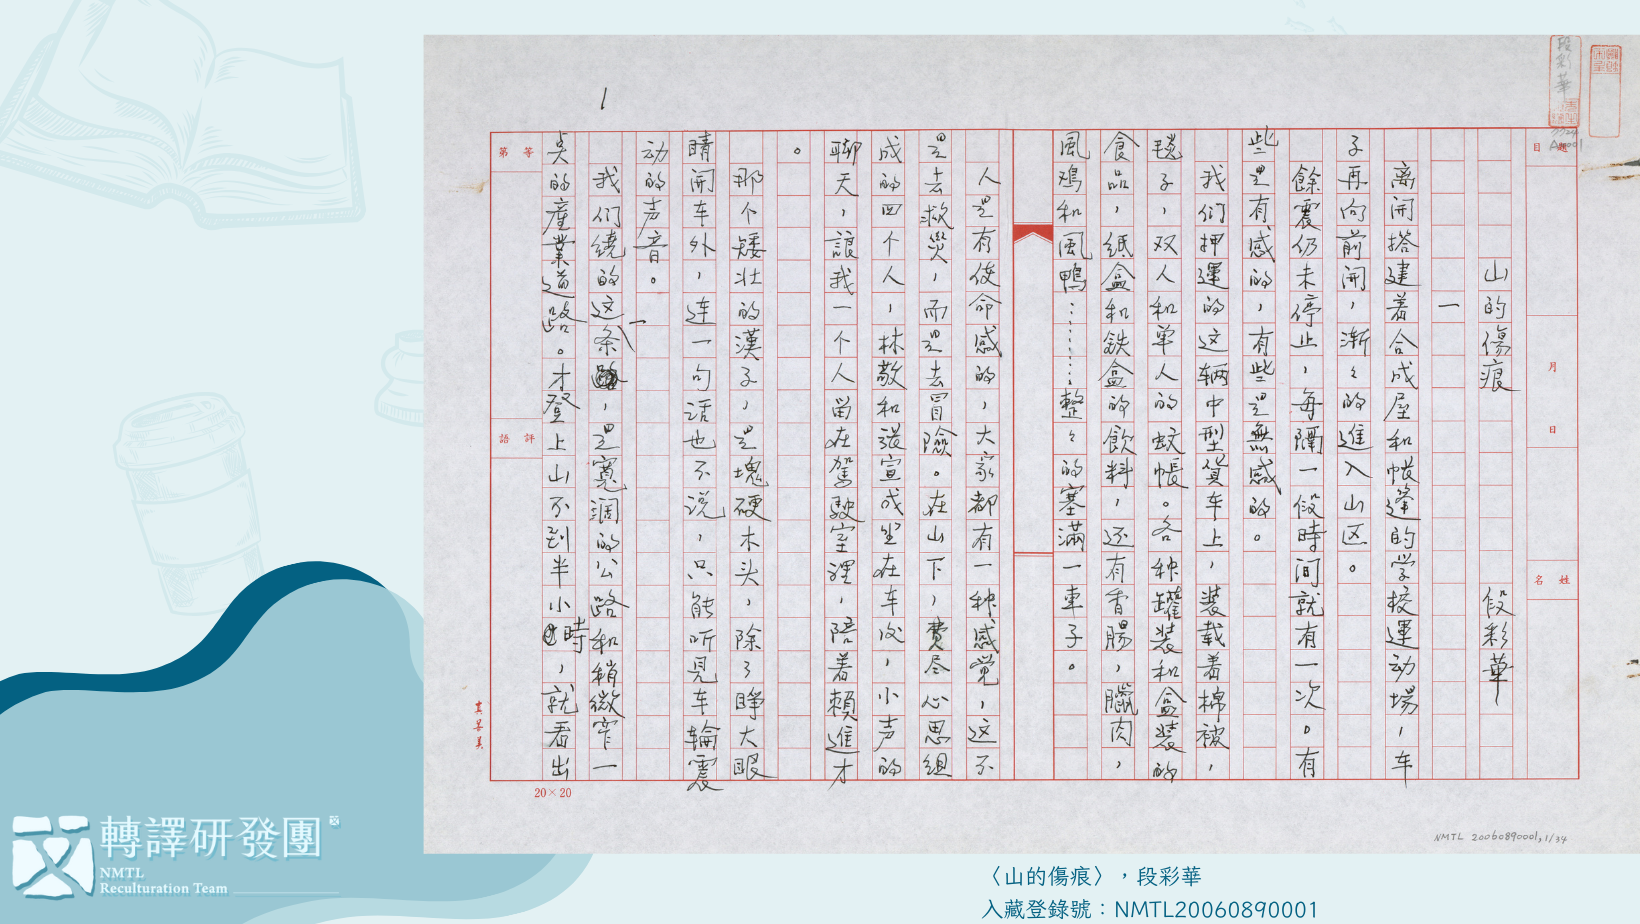 段彩華
1
題目
月
日
姓名
山的傷痕
段彩華
一
离開搭建着合成屋和帳篷的学校運动場，车
子再向前開，漸々的進入山区。
餘震仍未停止，每隔一段時间就有一次。有
些是有感的，有些是無感的。
我们押運的这辆中型貨车上，装载着棉被，
毯子，双人和单人的蚊帳。各种罐装和盒装的
食品，纸盒和鉄盒的飲料，还有香腸，臘肉，
風鸡和風鴨………整々的塞滿一車子。
人是有使命感的，大家都有一种感觉，这不
是去救災，而是去冒險。在山下，費尽心思组
成的四个人，林敬和張宣成坐在车後，小声的
聊天，讓我一个人留在駕駛室裡，陪着賴進才
。
那个矮壮的漢子，是塊硬木头，除了睁大眼
睛開车外，连一句话也不说，只能听見车輪震
动的声音。
我们繞的这一条，是寬濶的公路和稍微窄一
点的產業道路。才登上山不到半小時，就看出
等第
評語
20×20
NMTL 20060890001,1/34
轉譯研發團
NMTL
Reculturation Team
〈山的傷痕〉，段彩華
入藏登錄號：NMTL20060890001